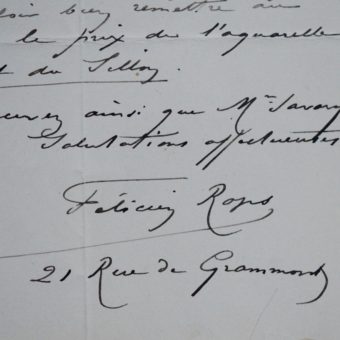 bien remettre au
le prix de l'aquarelle
du Sillon.
ainsi que Mme Savary
Salutations affectueuses
Félicien Rops
21 Rue de Grammont